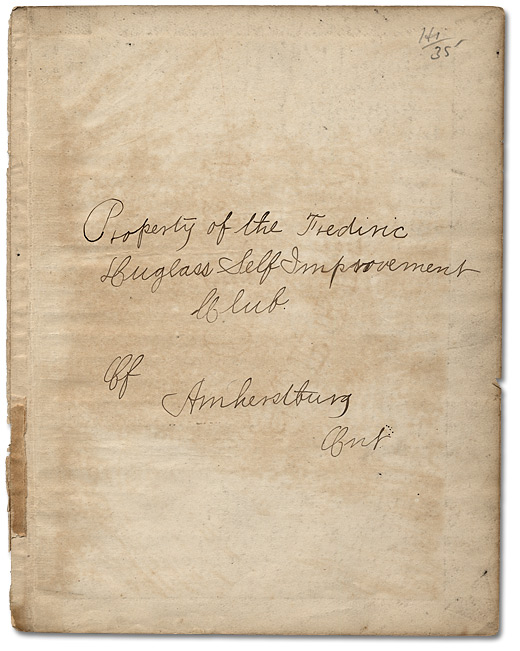 Hi
35
Property of the Frediric
Duglass Self Improvement
Club.
Of
Amherstburg
Ont